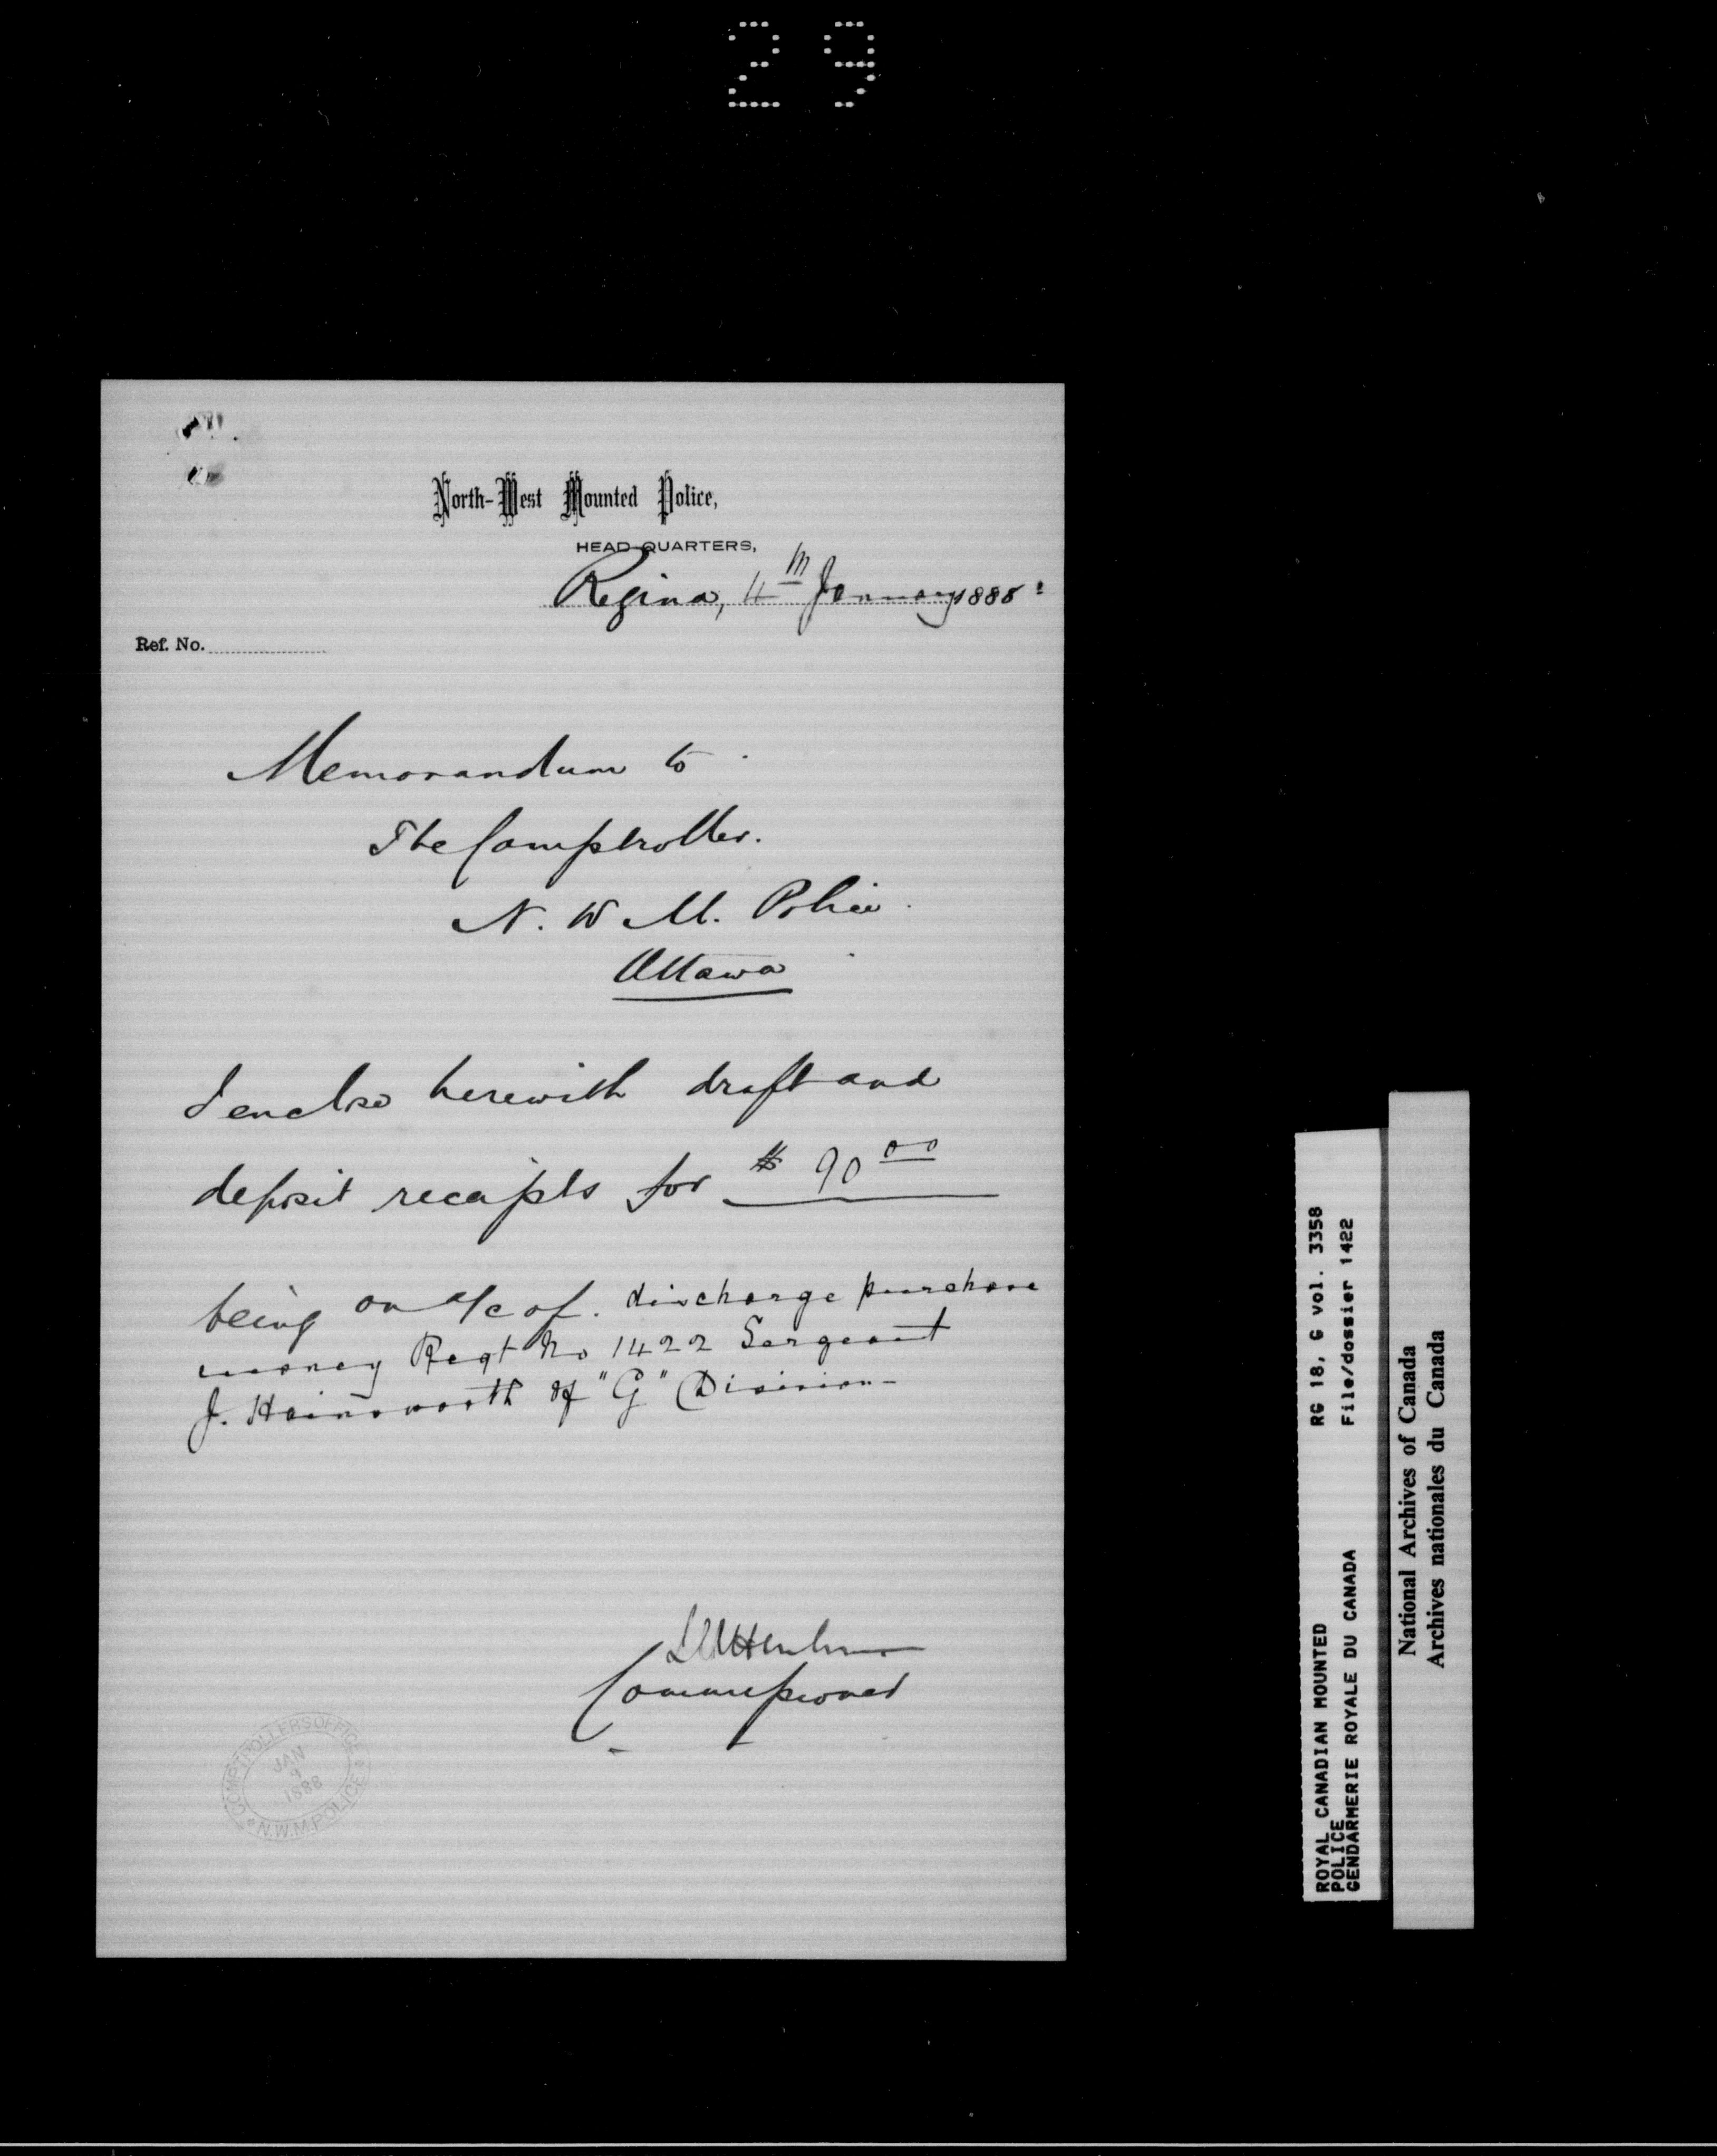 29
North-West Mounted Police,
HEAD-QUARTERS,
Regina, 4th January 1888
Ref. No.
Memorandum to
The Comptroller.
N. W. M. Police.
Ottawa
I enclose herewith draft and
deposit receipts for $ 90 00
being on a/c of. discharge purchase
money Regt No 1422 Sergeant
J. Hainsworth of "G" Division
Commissioner
COMPTROLLERS OFFICE
JAN
9
1888
N.W.M. POLICE
ROYAL CANADIAN MOUNTED RG 18, G vol. 3358
POLICE
GENDARMERIE ROYALE DU CANADA File/dossier 1422
National Archives of Canada
Archives nationales du Canada